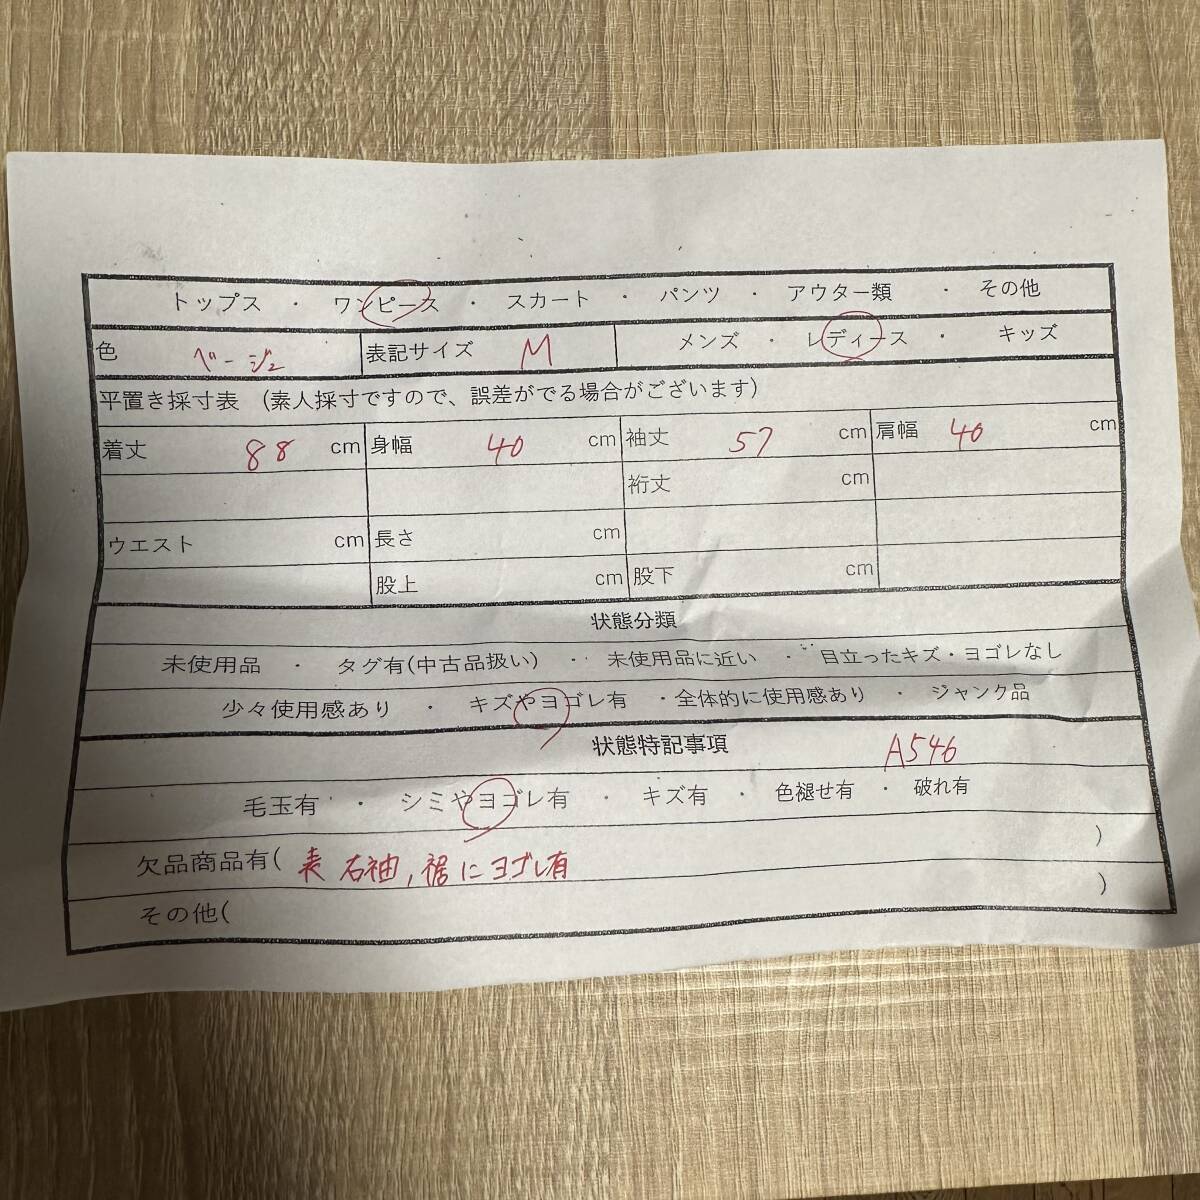 トップス ・ ワンピース ・ スカート ・ パンツ ・ アウター類 ・ その他
色 ベージュ 表記サイズ M メンズ ・ レディース ・ キッズ
平置き採寸表 (素人採寸ですので、誤差がでる場合がございます)
着丈 88 cm 身幅 40 cm 袖丈 57 cm 肩幅 40 cm
裄丈 cm
ウエスト cm 長さ cm
股上 cm 股下 cm
状態分類
未使用品 ・ タグ有(中古品扱い) ・ 未使用品に近い ・ 目立ったキズ・ヨゴレなし
少々使用感あり ・ キズやヨゴレ有 ・全体的に使用感あり ・ ジャンク品
状態特記事項 A546
毛玉有 ・ シミやヨゴレ有 ・ キズ有 ・ 色褪せ有 ・ 破れ有
欠品商品有( 表 右袖, 裾にヨゴレ有 )
その他( )